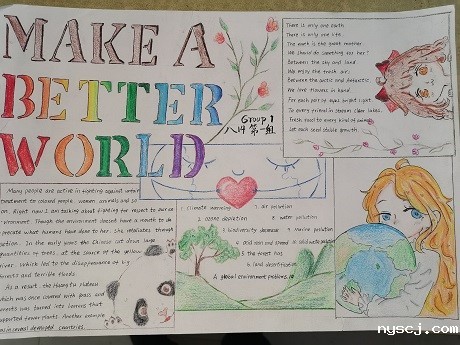 MAKE A
BETTER
WORLD
Group 1
八14 第一组
There is only one earth
There is only one life.
The earth is the great mother
We should do something for her?
Between the sky and land
We enjoy the fresh air,
Between the arctic and Antarctic.
We love flowers in hand
For each pair of eyes bright light.
To every friend in stream clear lakes.
Fresh soil to every kind of
Let each seed stable growth.
Many people are active in fighting against unfair
treatment to colored people, women, animals and so
on. Right now I am talking about fighting for respect to our en
vironment. Though the environment doesn't have a mouth to de
what humans have done to her. She retaliates through
action. In the early years the Chinese cut down large
quantities of trees at the source of the yellow
river. Which led to the disappearance of
forests and terrible floods.
As a result, the Huangtu plateau
which was once covered with grass and
forests was turned into
supported fewer plants. Another example
in several developed countries
1. climate warming
2. ozone depletion
3. biodiversity decrease
4. acid rain and
5. the forest has
6. land desertification
7. air pollution
8. water pollution
9. marine pollution
10. solid waste pollution
A global environment problems
nyscj.com